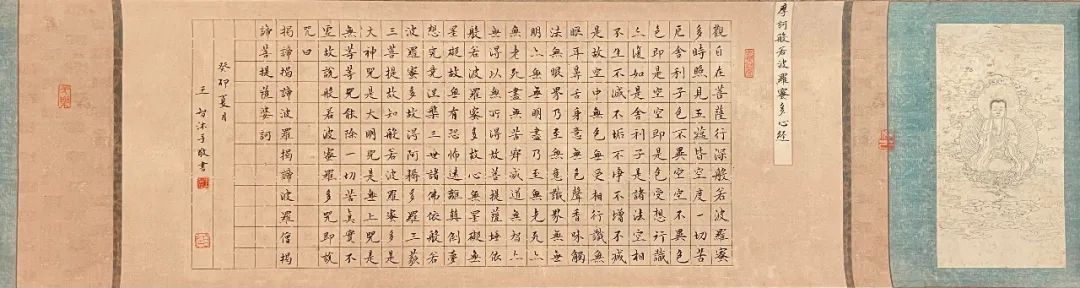 摩訶般若波羅蜜多心經
觀自在菩薩行深般若波羅蜜
多時照見五蘊皆空度一切苦
厄舍利子色不異空空不異色
色即是空空即是色受想行識
亦復如是舍利子是諸法空相
不生不滅不垢不淨不增不減
是故空中無色無受相行識無
眼耳鼻舌身意無色聲香味觸
法無眼界乃至無意識界無無
明亦無無明盡乃至無老死亦
無老死盡無苦集滅道無智亦
無得以無所得故菩提薩埵依
般若波羅蜜多故心無罣礙無
罣礙故無有恐怖遠離顛倒夢
想究竟涅槃三世諸佛依般若
波羅蜜多故得阿耨多羅三藐
三菩提故知般若波羅蜜多是
大神咒是大明咒是無上咒是
無等等咒能除一切苦真實不
虛故說般若波蜜羅多咒即說
咒曰
揭諦揭諦波羅揭諦波羅僧揭
諦菩提薩婆訶
癸卯夏月
王沐手敬書